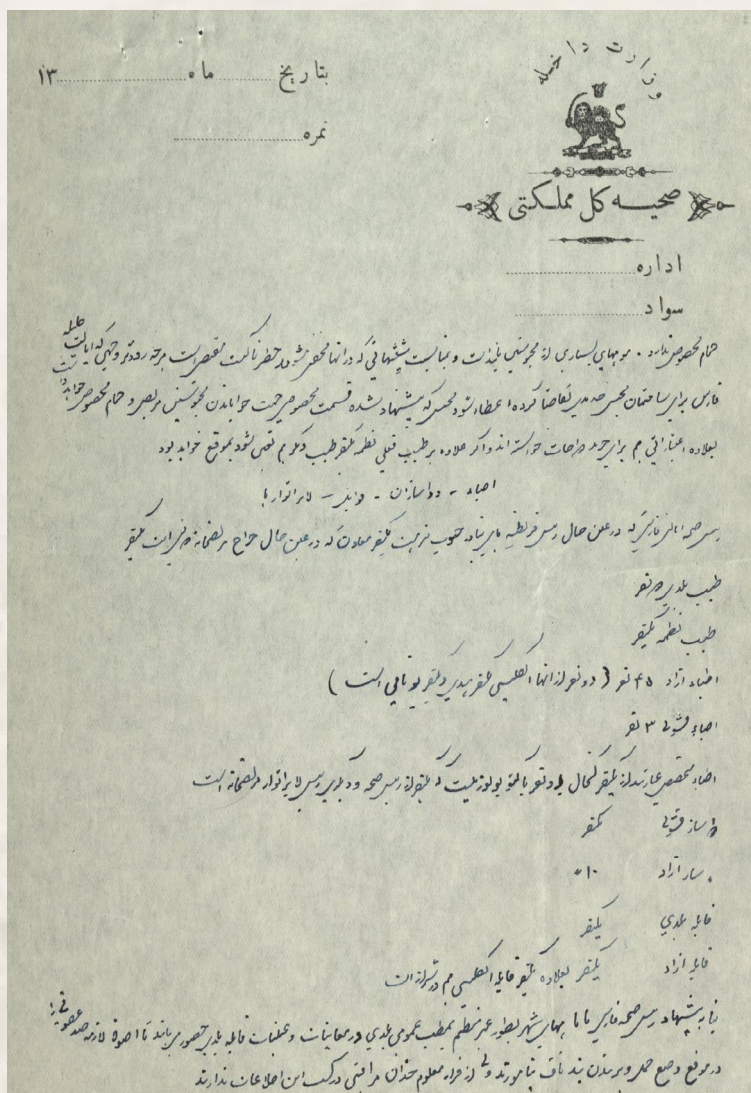 وزارت داخله
صحیه کل مملکتی
بتاریخ ماه ۱۳
نمره
اداره
سواد
حمام مخصوص ندارد. موجهای بسیاری از محبوسین پلیدند و بمناسبت شپشهائی که در آنها مخفی میشود خطرناکست مقتضی است هرچه زودتر وجهی که ایالت جلیله
فارس برای ساختمان محبس جدیدی تقاضا کرده اعطاء شود محبس که پیشنهاد شده قسمت مخصوصی جهت خواباندن محبوسین مریض و حمام مخصوصی خواهد داشت
بعلاوه اعتباراتی هم برای جراحات خواسته اند و اگر علاوه بر طبیب فعلی نظمیه یکنفر طبیب دیگر هم تعیین شود بموقع خواهد بود
اطباء - دواسازان - قوابل - لابراتوارها
رئیس صحیه ایالتی فارس که در عین حال رئیس قرنطینه های بنادر جنوب نیز هست یکنفر معاون که در عین حال جراح مریضخانه نیز است یکنفر
طبیب بلدی نفر
طبیب نظمیه یکنفر
اطباء آزاد ۴۵ نفر (دو نفر از آنها انگلیسی یکنفر هندی و یکنفر یونانی است)
اطباء قشونی ۳ نفر
اطباء متخصص عبارتند از یکنفر کحال و دو نفر باکتریولوژیست که یکنفر از رئیس صحیه و دیگری رئیس لابراتوار مریضخانه است
دواساز قشونی یکنفر
〃 ساز آزاد ۱۰ 〃
قابله بلدی یکنفر
قابله آزاد یکنفر بعلاوه یکنفر قابله انگلیسی هم در شیراز است
بنا به پیشنهاد رئیس صحیه فارس ماماهای شهر بطور غیر منظم بمطب عمومی بلدی در معاینات و عملیات قابله بلدی حضور می یابند تا اصول لازمه ضد عفونی را
در موقع وضع حمل و بریدن بند ناف بیاموزند ولی از قرار معلوم چندان مراقبتی در کسب این اطلاعات ندارند